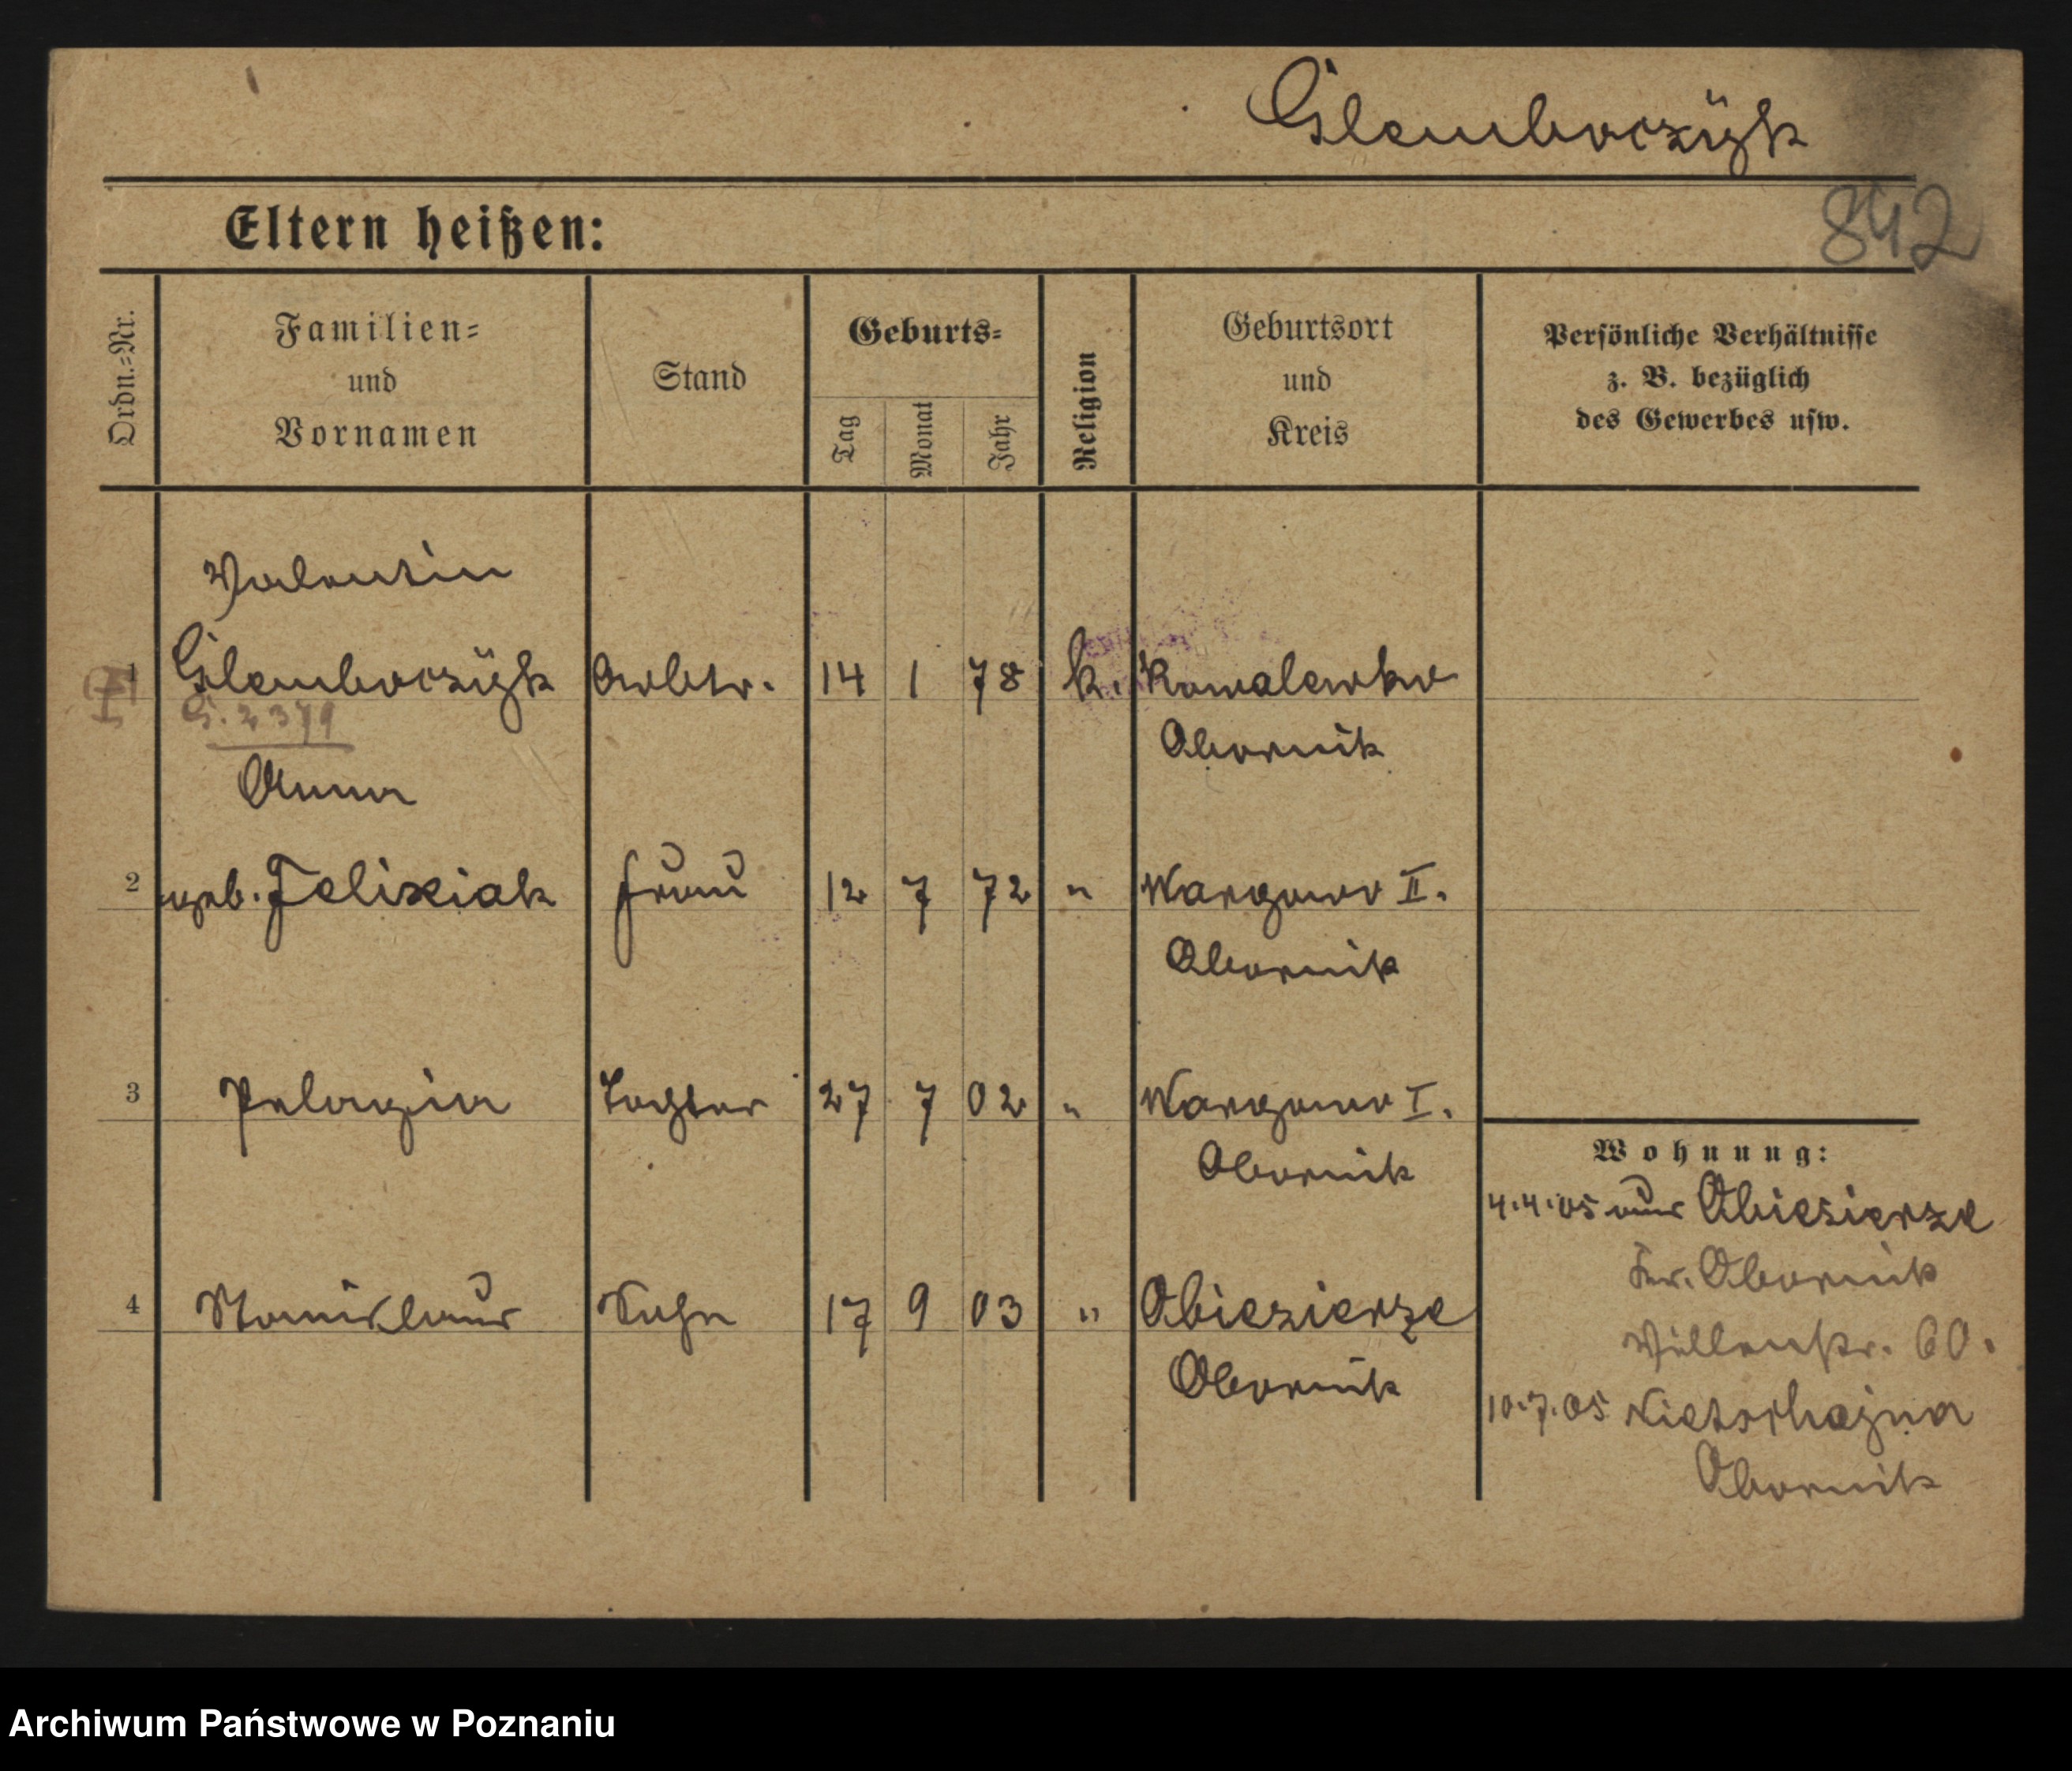 Glemboczÿk
842
Eltern heißen:
Ordn.=Nr.
Familien=
und
Vornamen
Stand
Geburts=
Tag
Monat
Jahr
Religion
Geburtsort
und
Kreis
Persönliche Verhältnisse
z. B. bezüglich
des Gewerbes usw.
Valentin
1 Glemboczÿk Arbtr. 14 1 78 k. Kowalewko
G. 2379
Obornik
Anna
2 geb. Felixiak Frau 12 7 72 " Wargowo II.
Obornik
3 Pelagia Tochter 27 7 02 " Wargowo I.
Obornik
Wohnung:
4.4.05 aus Obiesierze
Kr. Obornik
4 Stanislaus Sohn 17 9 03 " Obiezierze
Villenstr. 60.
Obornik
10.7.05 Nietschajna
Obornik
Archiwum Państwowe w Poznaniu